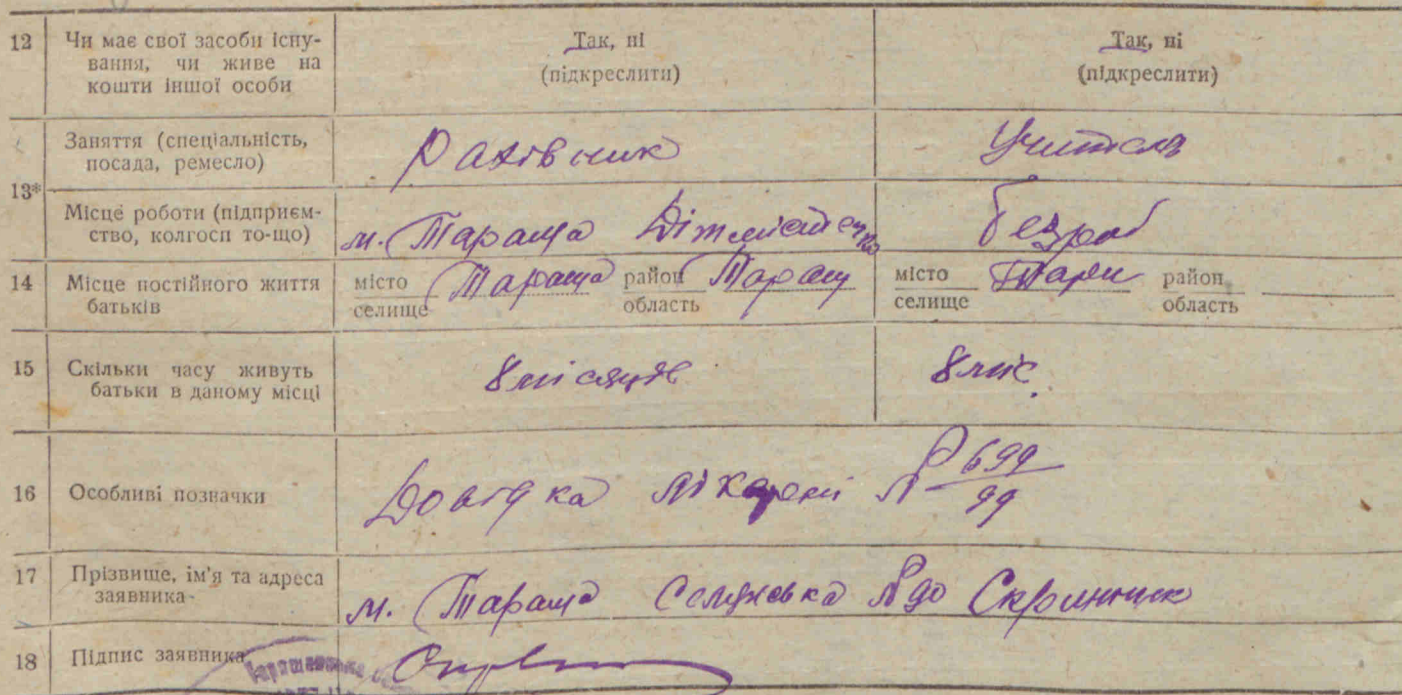 12 Чи має свої засоби існу-
вання, чи живе на
кошти іншої особи
Так, ні
(підкреслити)
Так, ні
(підкреслити)
Заняття (спеціальність,
посада, ремесло)
Рахівник
Учителя
13*
Місце роботи (підприєм-
ство, колгосп то-що)
м. Тараща
безроб
14 Місце постійного життя
батьків
місто Тараща район Таращ
селище область
місто район
селище область
15 Скільки часу живуть
батьки в даному місці
8 місяців
8 міс.
16 Особливі позначки
Довідка лікарні № 699
99
17 Прізвище, ім'я та адреса
заявника
м. Тараща
18 Підпис заявника